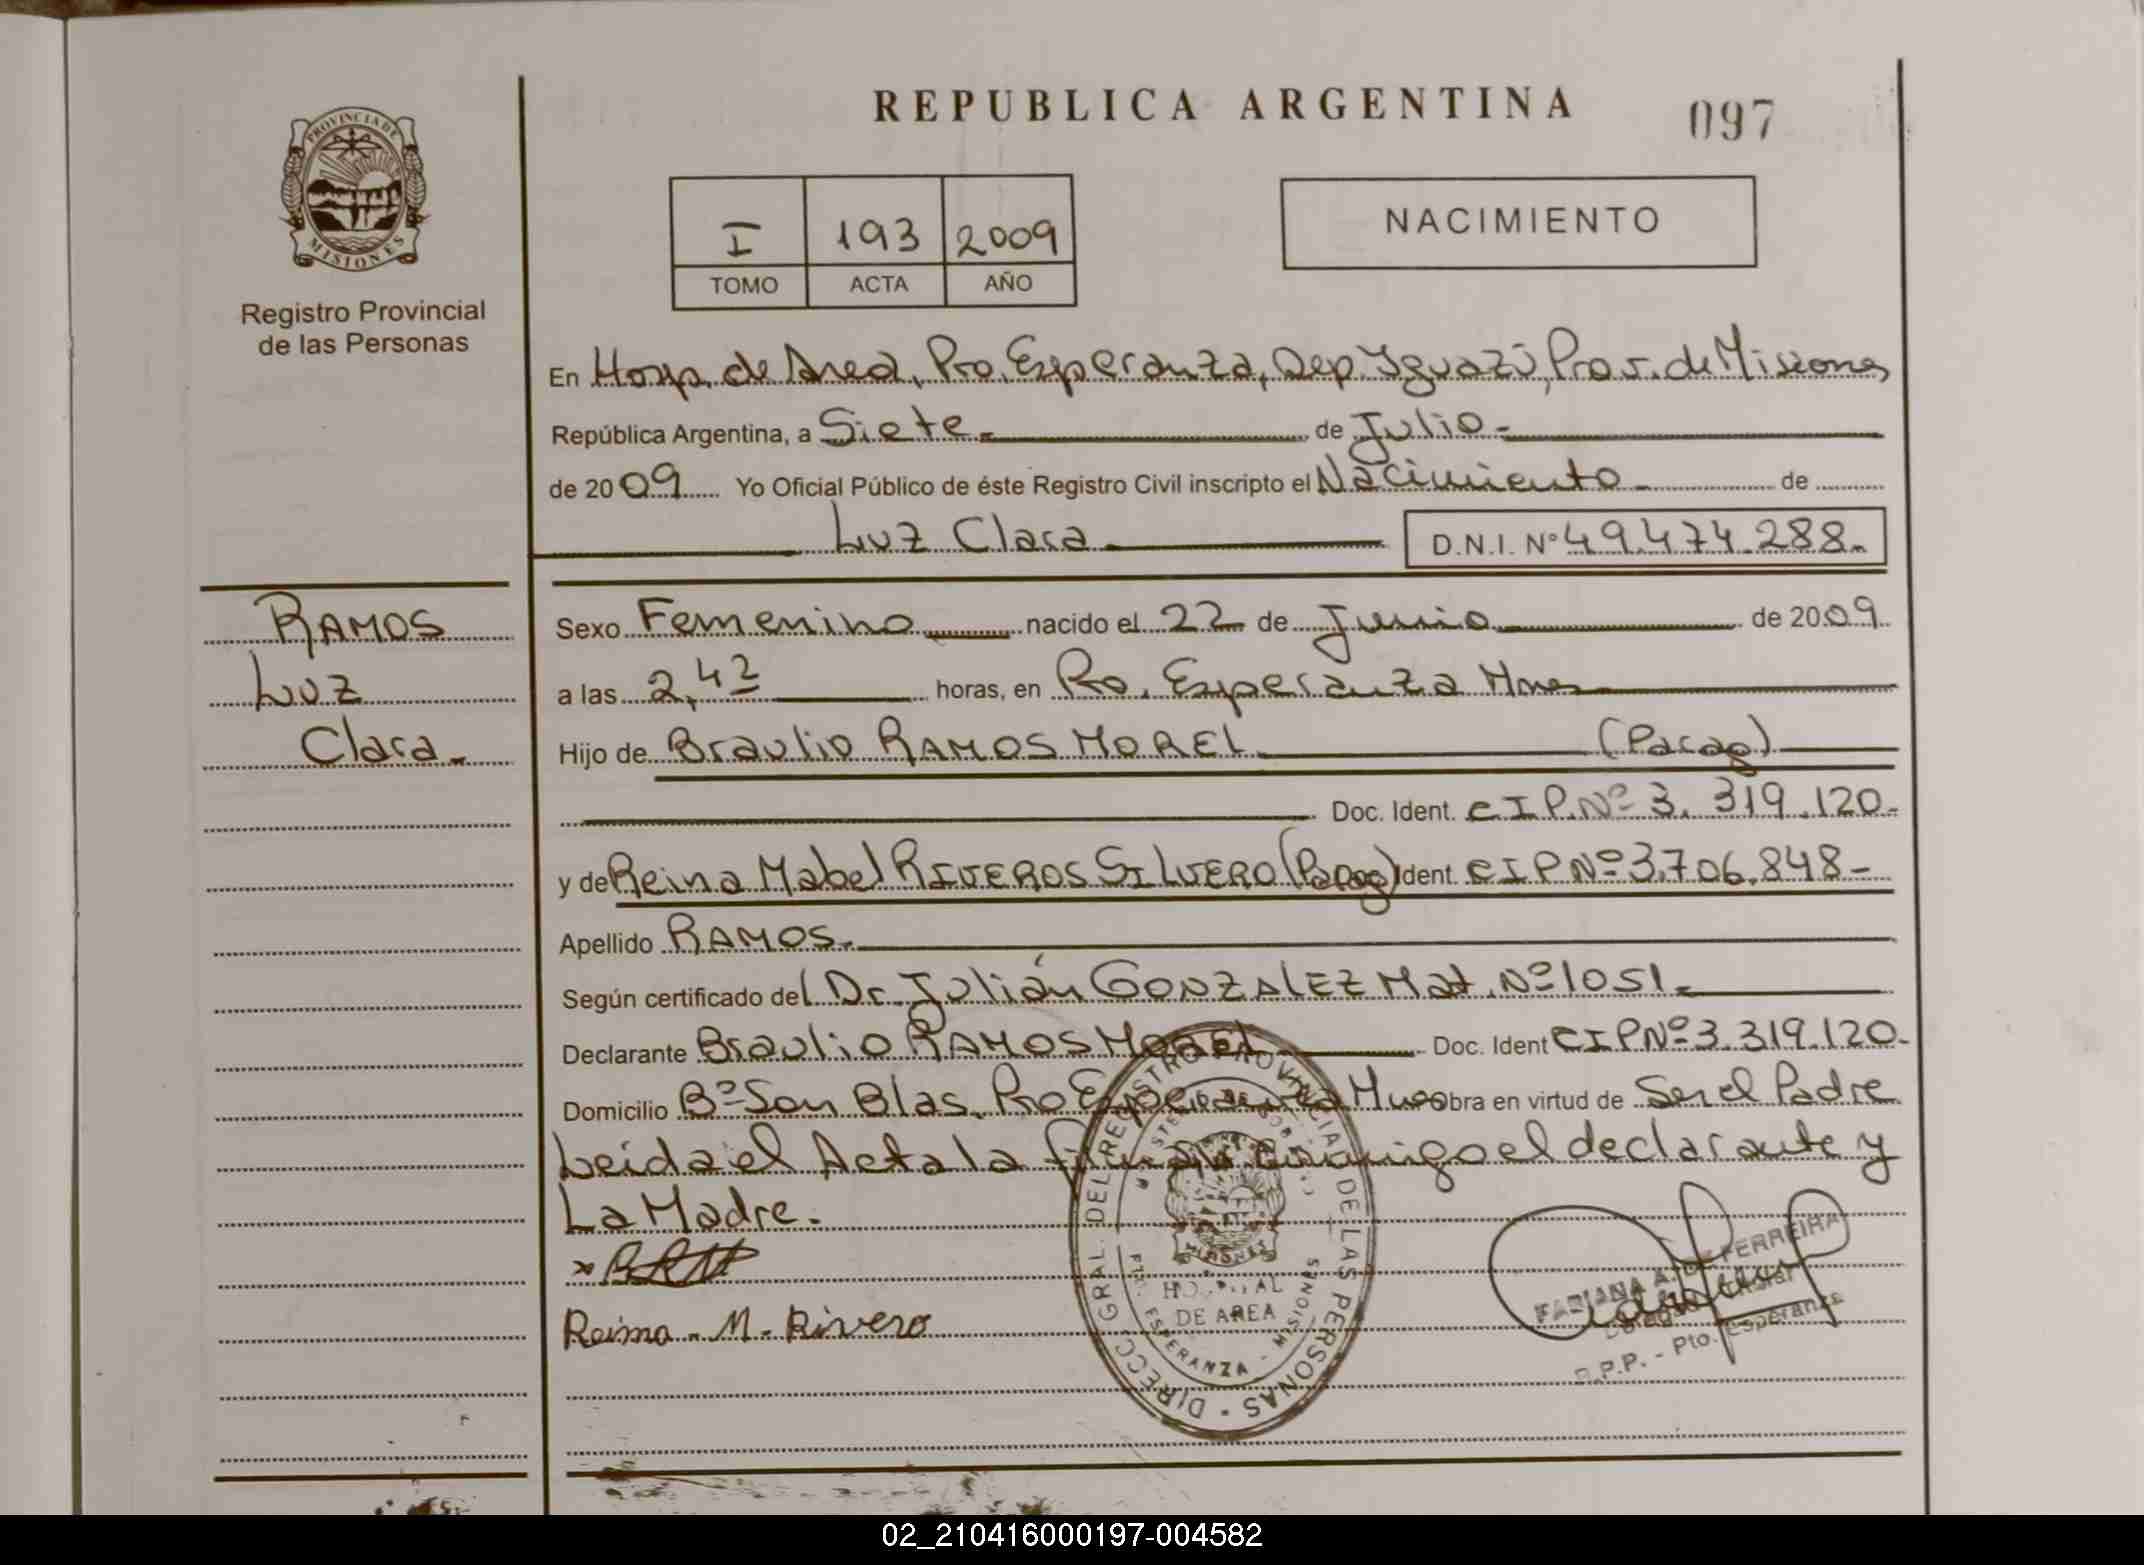 REPUBLICA ARGENTINA
097
PROVINCIA DE
MISIONES
Registro Provincial
de las Personas
I 193 2009
TOMO ACTA AÑO
NACIMIENTO
En Hosp. de Area, Pto. Esperanza, Dep. Iguazú, Prov. de Misiones
República Argentina, a Siete.- de Julio-
de 2009 Yo Oficial Público de éste Registro Civil inscripto el Nacimiento- de
Luz Clara- D.N.I. Nº 49.474.288.-
RAMOS
Luz
Clara.-
Sexo Femenino nacido el 22 de Junio de 2009
a las 2,42 horas, en Pto. Esperanza Mnes-
Hijo de Braulio RAMOS MOREL (Parag)
Doc. Ident. CIP.Nº 3.319.120-
y de Reina Mabel RIVEROS SILVERO (Parag) Ident. CIP Nº 3.706.848-
Apellido RAMOS.-
Según certificado del Dr. Julián GONZALEZ Mat. Nº 1051.-
Declarante Braulio RAMOS MOREL Doc. Ident CIP Nº 3.319.120-
Domicilio Bº San Blas, Pto Esperanza Mnes Obra en virtud de Ser el Padre
Leida el Acta la firman conmigo el declarante y
La Madre.-
Reima - M - Rivero
DIRECC. GRAL. DEL REGISTRO PROVINCIAL DE LAS PERSONAS
MISIONES
HOSPITAL
DE AREA
PTO. ESPERANZA - MISIONES
FABIANA A. DE FERREIRA
R.P.P. - Pto. Esperanza
02_210416000197-004582